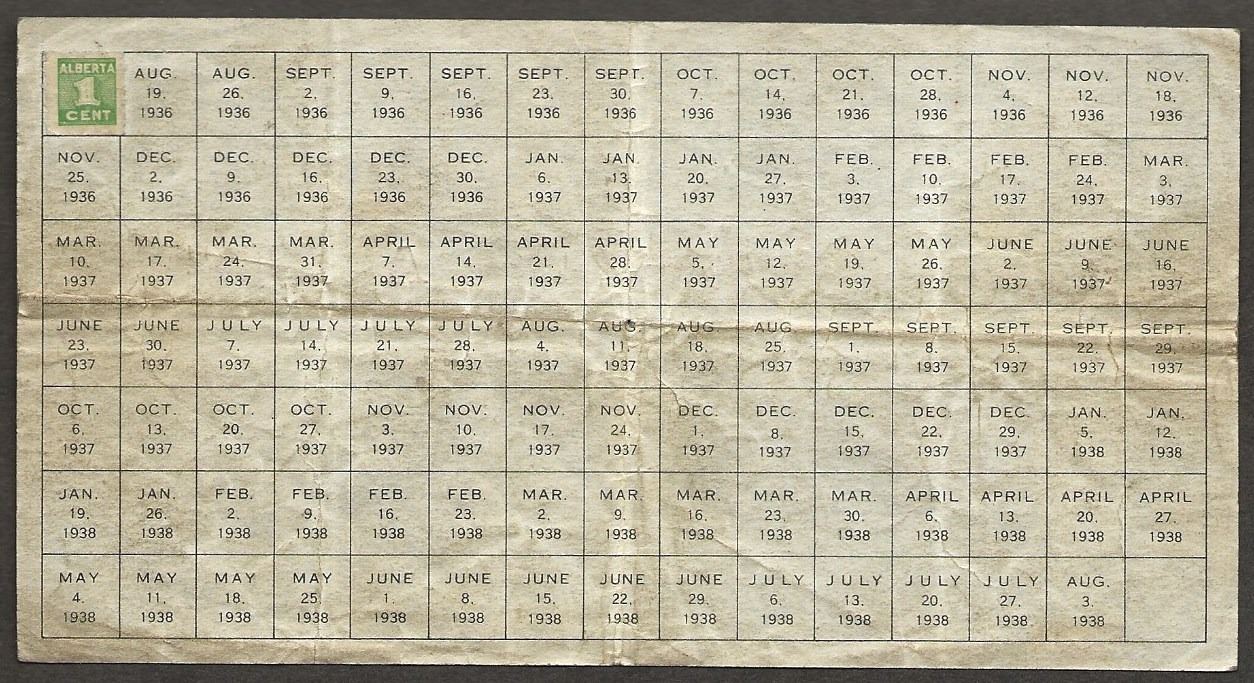 ALBERTA
1
CENT
AUG. AUG. SEPT. SEPT. SEPT. SEPT. SEPT. OCT. OCT. OCT. OCT. NOV. NOV. NOV.
19. 26. 2. 9. 16. 23. 30. 7. 14. 21. 28. 4. 12. 18.
1936 1936 1936 1936 1936 1936 1936 1936 1936 1936 1936 1936 1936 1936
NOV. DEC. DEC. DEC. DEC. DEC. JAN. JAN. JAN. JAN. FEB. FEB. FEB. FEB. MAR.
25. 2. 9. 16. 23. 30. 6. 13. 20. 27. 3. 10. 17. 24. 3.
1936 1936 1936 1936 1936 1936 1937 1937 1937 1937 1937 1937 1937 1937 1937
MAR. MAR. MAR. MAR. APRIL APRIL APRIL APRIL MAY MAY MAY MAY JUNE JUNE JUNE
10. 17. 24. 31. 7. 14. 21. 28. 5. 12. 19. 26. 2. 9. 16.
1937 1937 1937 1937 1937 1937 1937 1937 1937 1937 1937 1937 1937 1937 1937
JUNE JUNE JULY JULY JULY JULY AUG. AUG. AUG. AUG. SEPT. SEPT. SEPT. SEPT. SEPT.
23. 30. 7. 14. 21. 28. 4. 11. 18. 25. 1. 8. 15. 22. 29.
1937 1937 1937 1937 1937 1937 1937 1937 1937 1937 1937 1937 1937 1937 1937
OCT. OCT. OCT. OCT. NOV. NOV. NOV. NOV. DEC. DEC. DEC. DEC. DEC. JAN. JAN.
6. 13. 20. 27. 3. 10. 17. 24. 1. 8. 15. 22. 29. 5. 12.
1937 1937 1937 1937 1937 1937 1937 1937 1937 1937 1937 1937 1937 1938 1938
JAN. JAN. FEB. FEB. FEB. FEB. MAR. MAR. MAR. MAR. MAR. APRIL APRIL APRIL APRIL
19. 26. 2. 9. 16. 23. 2. 9. 16. 23. 30. 6. 13. 20. 27.
1938 1938 1938 1938 1938 1938 1938 1938 1938 1938 1938 1938 1938 1938 1938
MAY MAY MAY MAY JUNE JUNE JUNE JUNE JUNE JULY JULY JULY JULY AUG.
4. 11. 18. 25. 1 8. 15. 22. 29. 6. 13. 20. 27. 3.
1938 1938 1938 1938 1938 1938 1938 1938 1938 1938 1938 1938 1938 1938